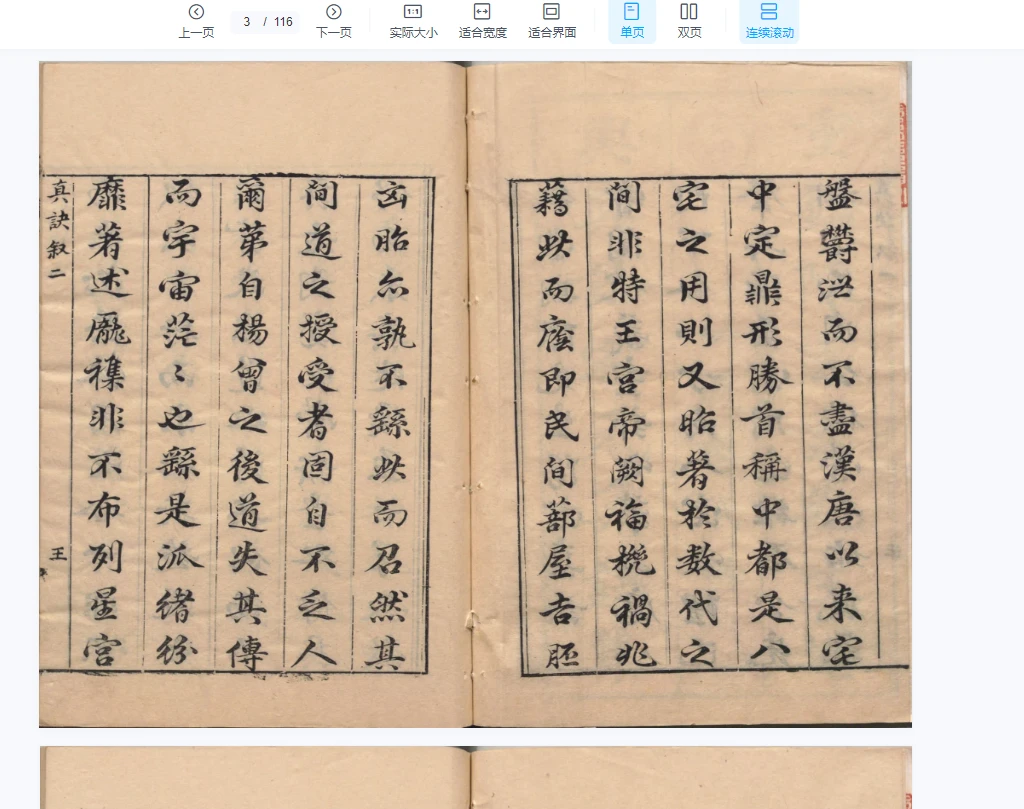 上一页
3 / 116
下一页
1:1
实际大小
适合宽度
适合界面
单页
双页
连续滚动
盤欝泄而不盡漢唐以来宅
中定鼎形勝首稱中都是八
宅之用則又昭著於数代之
間非特王宮帝闕福禍兆
藉此而廕即民間蔀屋吉胚
凶胎亦孰不繇此而召然其
間道之授受者固自不乏人
爾第自楊曾之後道失其傳
而宇宙茫〻也繇是派緒紛
靡著述厖襍非不布列星宮
真訣叙二
王